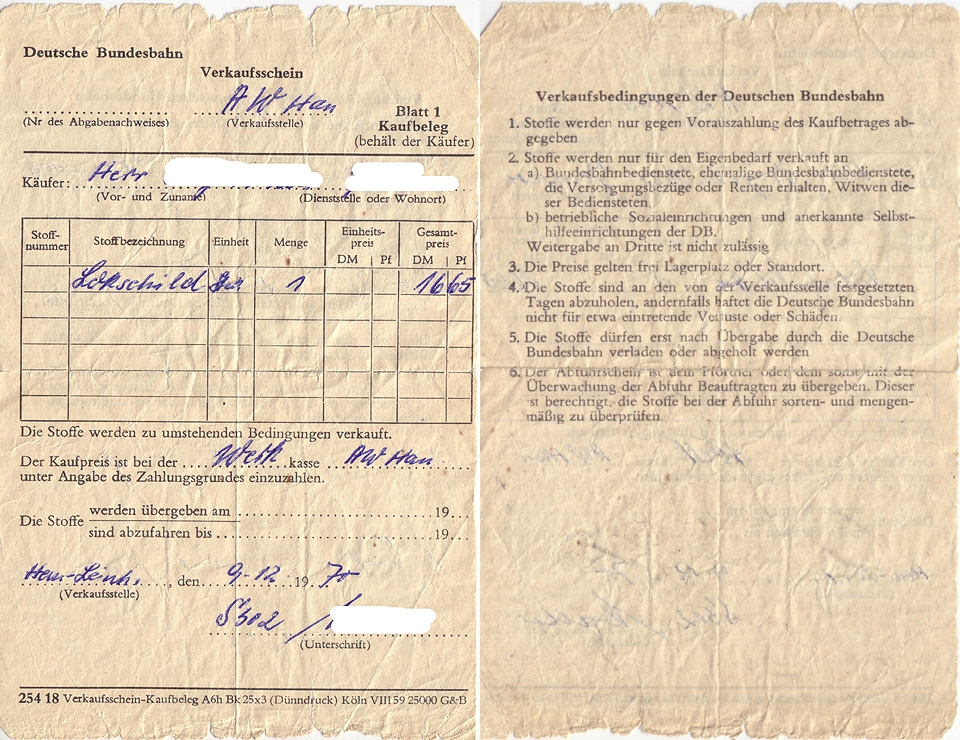 Deutsche Bundesbahn
Verkaufsschein
AW Han
(Nr des Abgabenachweises)
(Verkaufsstelle)
Blatt 1
Kaufbeleg
(behält der Käufer)
Käufer: Herr
(Vor- und Zuname)
(Dienststelle oder Wohnort)
Stoff-nummer Stoffbezeichnung Einheit Menge Einheits-preis DM Pf Gesamt-preis DM Pf
Lokschild 1 16 65
Die Stoffe werden zu umstehenden Bedingungen verkauft.
Der Kaufpreis ist bei der Werk kasse AW Han
unter Angabe des Zahlungsgrundes einzuzahlen.
Die Stoffe
werden übergeben am 19
sind abzufahren bis 19
den 9-12 19 70
(Verkaufsstelle)
(Unterschrift)
254 18 Verkaufsschein-Kaufbeleg A6h Bk 25x3 (Dünndruck) Köln VIII 59 25000 G&B
Verkaufsbedingungen der Deutschen Bundesbahn
1. Stoffe werden nur gegen Vorauszahlung des Kaufbetrages ab-
gegeben
2. Stoffe werden nur für den Eigenbedarf verkauft an
a) Bundesbahnbedienstete, ehemalige Bundesbahnbedienstete,
die Versorgungsbezüge oder Renten erhalten, Witwen die-
ser Bediensteten,
b) betriebliche Sozialeinrichtungen und anerkannte Selbst-
hilfeeinrichtungen der DB.
Weitergabe an Dritte ist nicht zulässig
3. Die Preise gelten frei Lagerplatz oder Standort.
4. Die Stoffe sind an den von der Verkaufsstelle festgesetzten
Tagen abzuholen, andernfalls haftet die Deutsche Bundesbahn
nicht für etwa eintretende Verluste oder Schäden.
5. Die Stoffe dürfen erst nach Übergabe durch die Deutsche
Bundesbahn verladen oder abgeholt werden
6. Der Abfuhrschein ist dem Pförtner oder dem sonst mit der
Überwachung der Abfuhr Beauftragten zu übergeben. Dieser
ist berechtigt, die Stoffe bei der Abfuhr sorten- und mengen-
mäßig zu überprüfen.